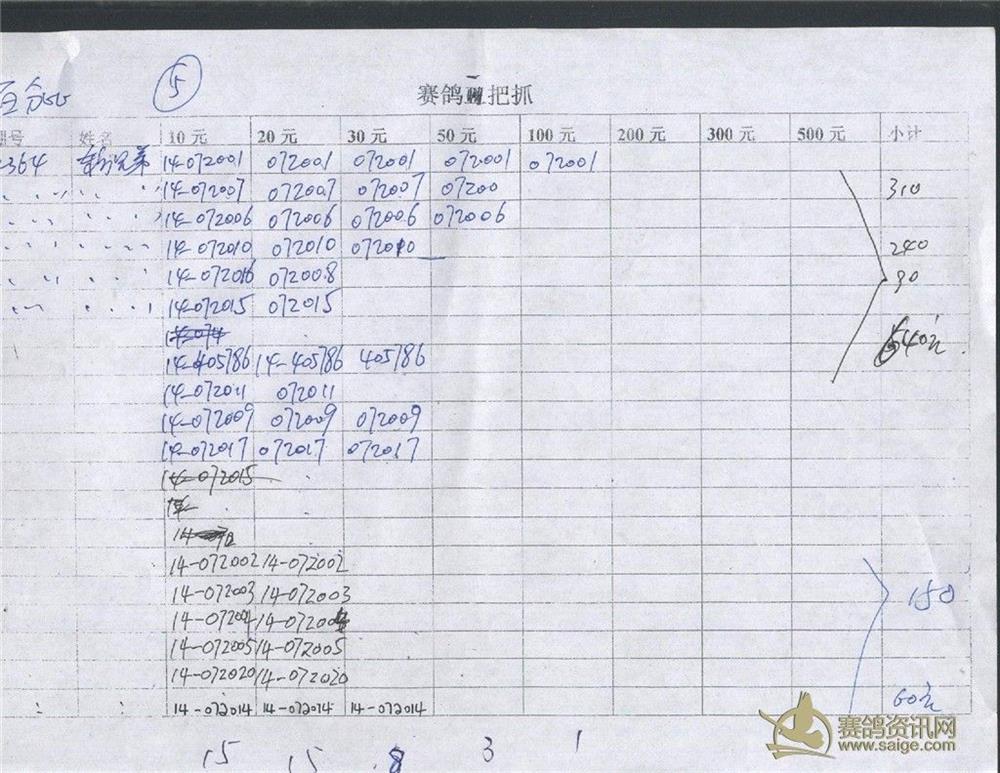 百分 ⑤
赛鸽 把抓
姓名 10元 20元 30元 50元 100元 200元 300元 500元 小计
364 兄弟 14-072001 072001 072001 072001 072001
14-072007 072007 072007 07200 310
14-072006 072006 072006 072006
14-072010 072010 072010 240
14-072016 072008 90
14-072015 072015
14-074
540元
14-405786 14-405786 405786
14-072011 072011
14-072009 072009 072009
14-072017 072017 072017
14-072015
14
14-072002 14-072002
14-072003 14-072003 150
14-072004 14-072004
14-072005 14-072005
14-072020 14-072020
14-072014 14-072014 14-072014 60元
15 15 8 3 1
赛鸽资讯网
www.saige.com